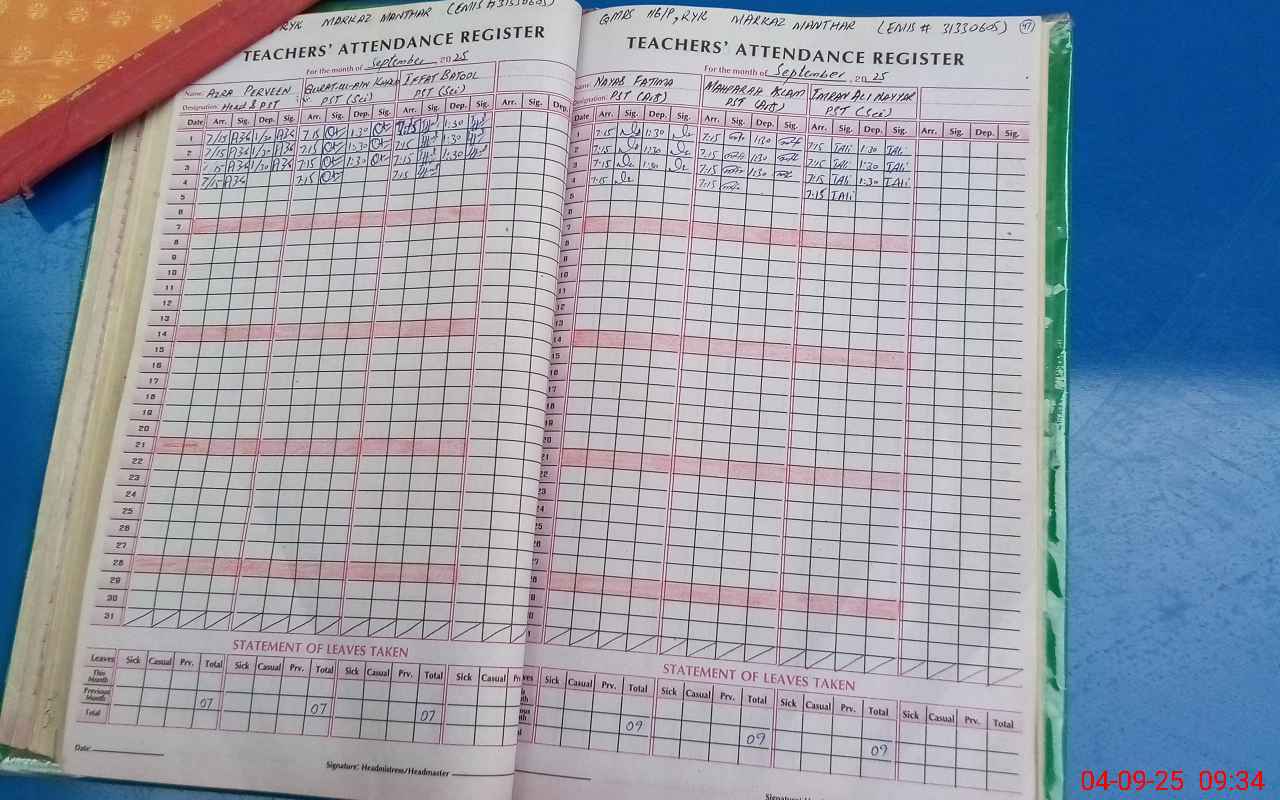 RYK MARKAZ MANTHAR (EMIS # 31330605)
TEACHERS' ATTENDANCE REGISTER
For the month of September 2025
Name: AZRA PERVEEN QURAT-UL-AIN KHAN IFFAT BATOOL
Designation: Head & PST PST (Sci) PST (Sci)
Date Arr. Sig. Dep. Sig. Arr. Sig. Dep. Sig. Arr. Sig. Dep. Sig. Arr. Sig. Dep.
1 7/15 1/30 7:15 1:30 7:15 1:30
2 7/15 1/30 7:15 1:30 7:15 1:30
3 7/15 1/30 7:15 1:30 7:15 1:30
4 7/15 7:15 7:15
5
6
7
8
9
10
11
12
13
14
15
16
17
18
19
20
21
22
23
24
25
26
27
28
29
30
31
STATEMENT OF LEAVES TAKEN
Leaves Sick Casual Prv. Total Sick Casual Prv. Total Sick Casual Prv. Total Sick Casual Prv.
This Month
Previous Month 07 07 07
Total
Date:
Signature: Headmistress/Headmaster
GMPS 116/P, RYK MARKAZ MANTHAR (EMIS # 31330605) 47
TEACHERS' ATTENDANCE REGISTER
For the month of September 2025
Name: NAYAB FATIMA MAHPARAH ASLAM IMRAN ALI NAYYAR
Designation: PST (Art) PST (Art) PST (Sci)
Date Arr. Sig. Dep. Sig. Arr. Sig. Dep. Sig. Arr. Sig. Dep. Sig. Arr. Sig. Dep. Sig.
1 7:15 1:30 7:15 1:30 7:15 IAli 1:30 IAli
2 7:15 1:30 7:15 1:30 7:15 IAli 1:30 IAli
3 7:15 1:30 7:15 1:30 7:15 IAli 1:30 IAli
4 7:15 7:15 7:15 IAli
5
6
7
8
9
10
11
12
13
14
15
16
17
18
19
20
21
22
23
24
25
26
27
28
STATEMENT OF LEAVES TAKEN
Sick Casual Prv. Total Sick Casual Prv. Total Sick Casual Prv. Total Sick Casual Prv. Total
09 09 09
04-09-25 09:34